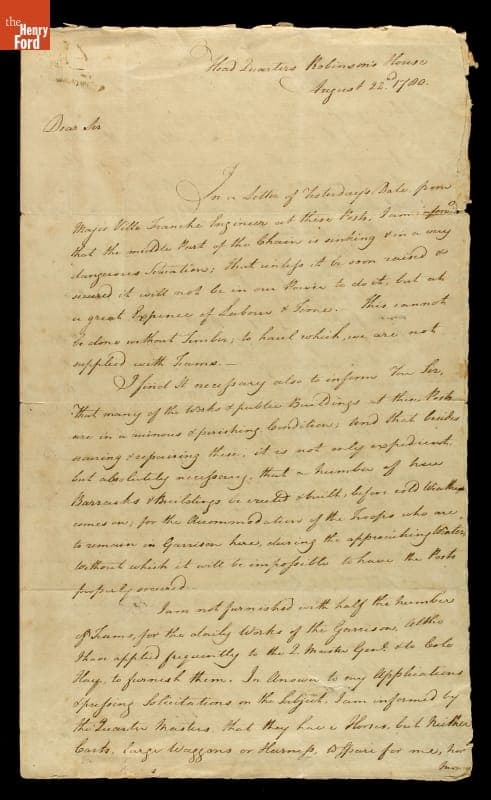 the
Henry
Ford
Head Quarters Robinson's House
August 22d 1780.
Dear Sir
In a Letter of Yesterday's Date, from
Major Villa Franche Engineer at these Posts, I am inform'd
that the middle Part of the Chain is sinking & in a very
dangerous Situation; That unless it be soon raised &
secured it will not be in our Power to do it, but at
a great Expence of Labour & Time. This cannot
be done without Timber; to haul which, we are not
supplied with Teams.—
I find It necessary also to inform You Sir,
That many of the Works & public Buildings at these Posts
are in a ruinous & perishing Condition; And that besides
& repairing these, it is not only expedient,
but absolutely necessary, that a number of new
Barracks & Buildings be erected & built, before cold Weather
comes on; for the Accommodation of the Troops who are
to remain in Garrison here, during the approaching Winter,
Without which it will be impossible to have the Posts
properly secured.
I am not furnished with half the number
of Teams, for the daily Works of the Garrison, Altho
I have applied frequently to the Q. Master Genl. & to Colo
Hay, to furnish them. In Answer to my Applications
& pressing Solicitations on the Subject, I am informed by
the Quarter Masters, that they have Horses, but Neither
Carts, large Waggons or Harness, to spare for me, nor
money